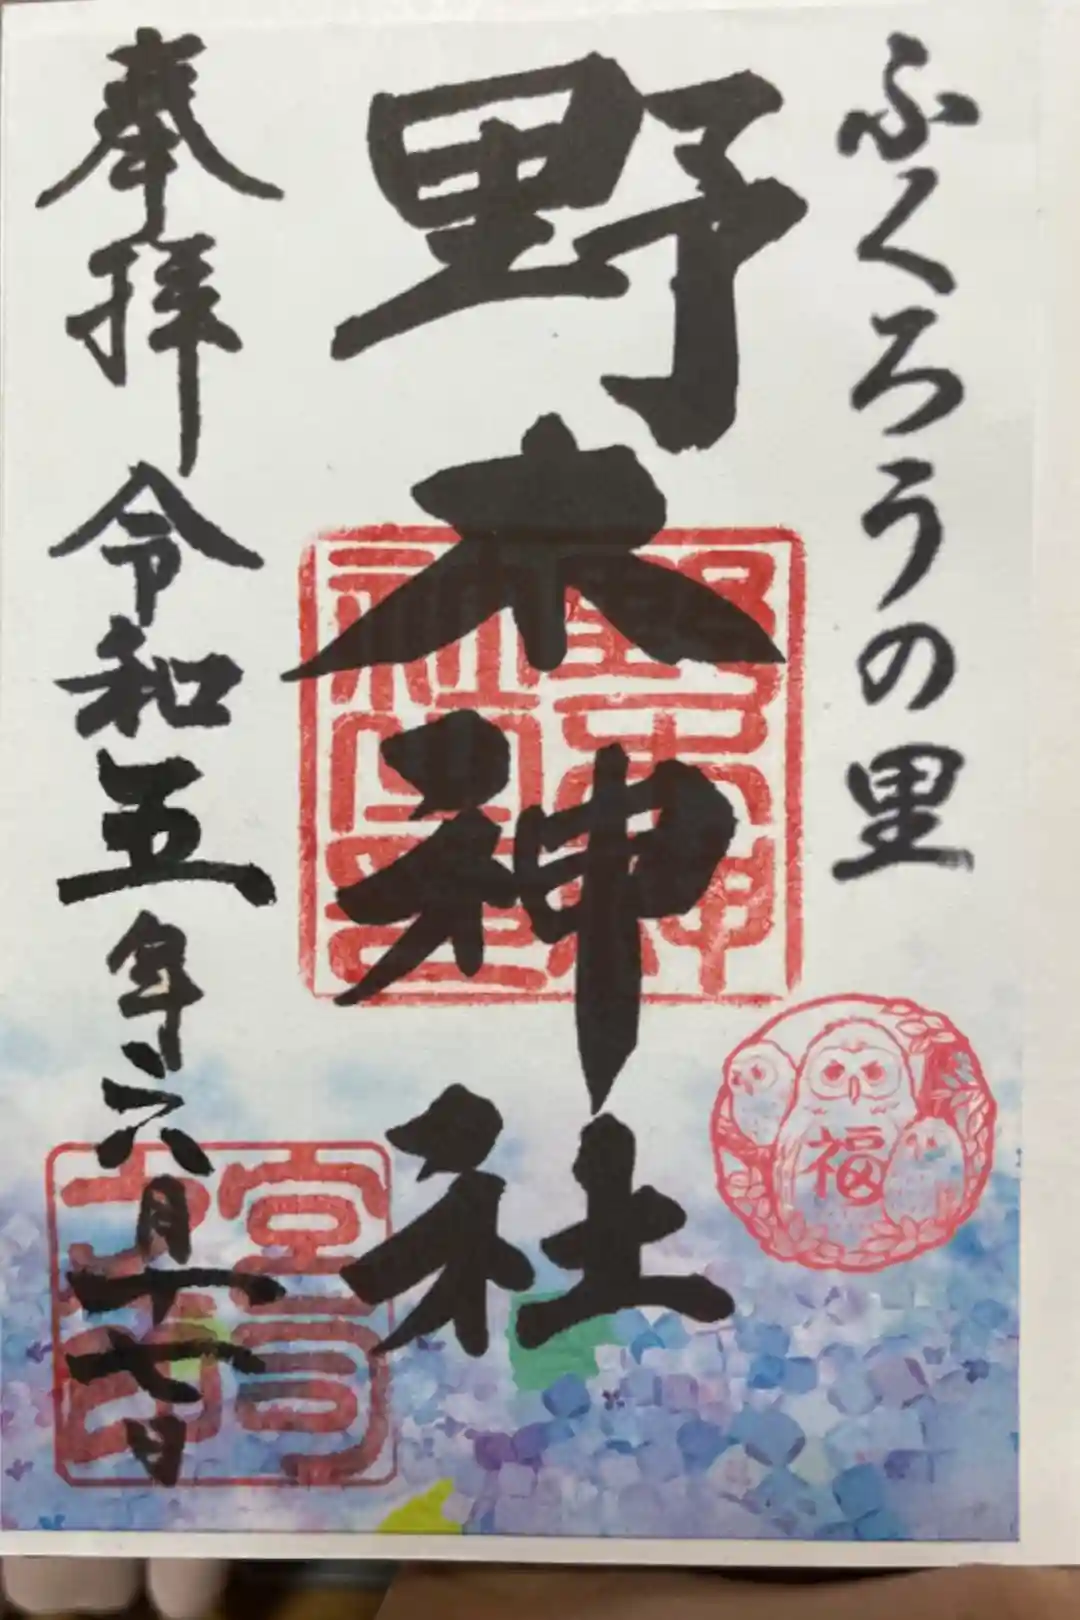 ふくろうの里
野木神社
野木神社印
福
奉拝 令和五年六月十七日
宮司之印